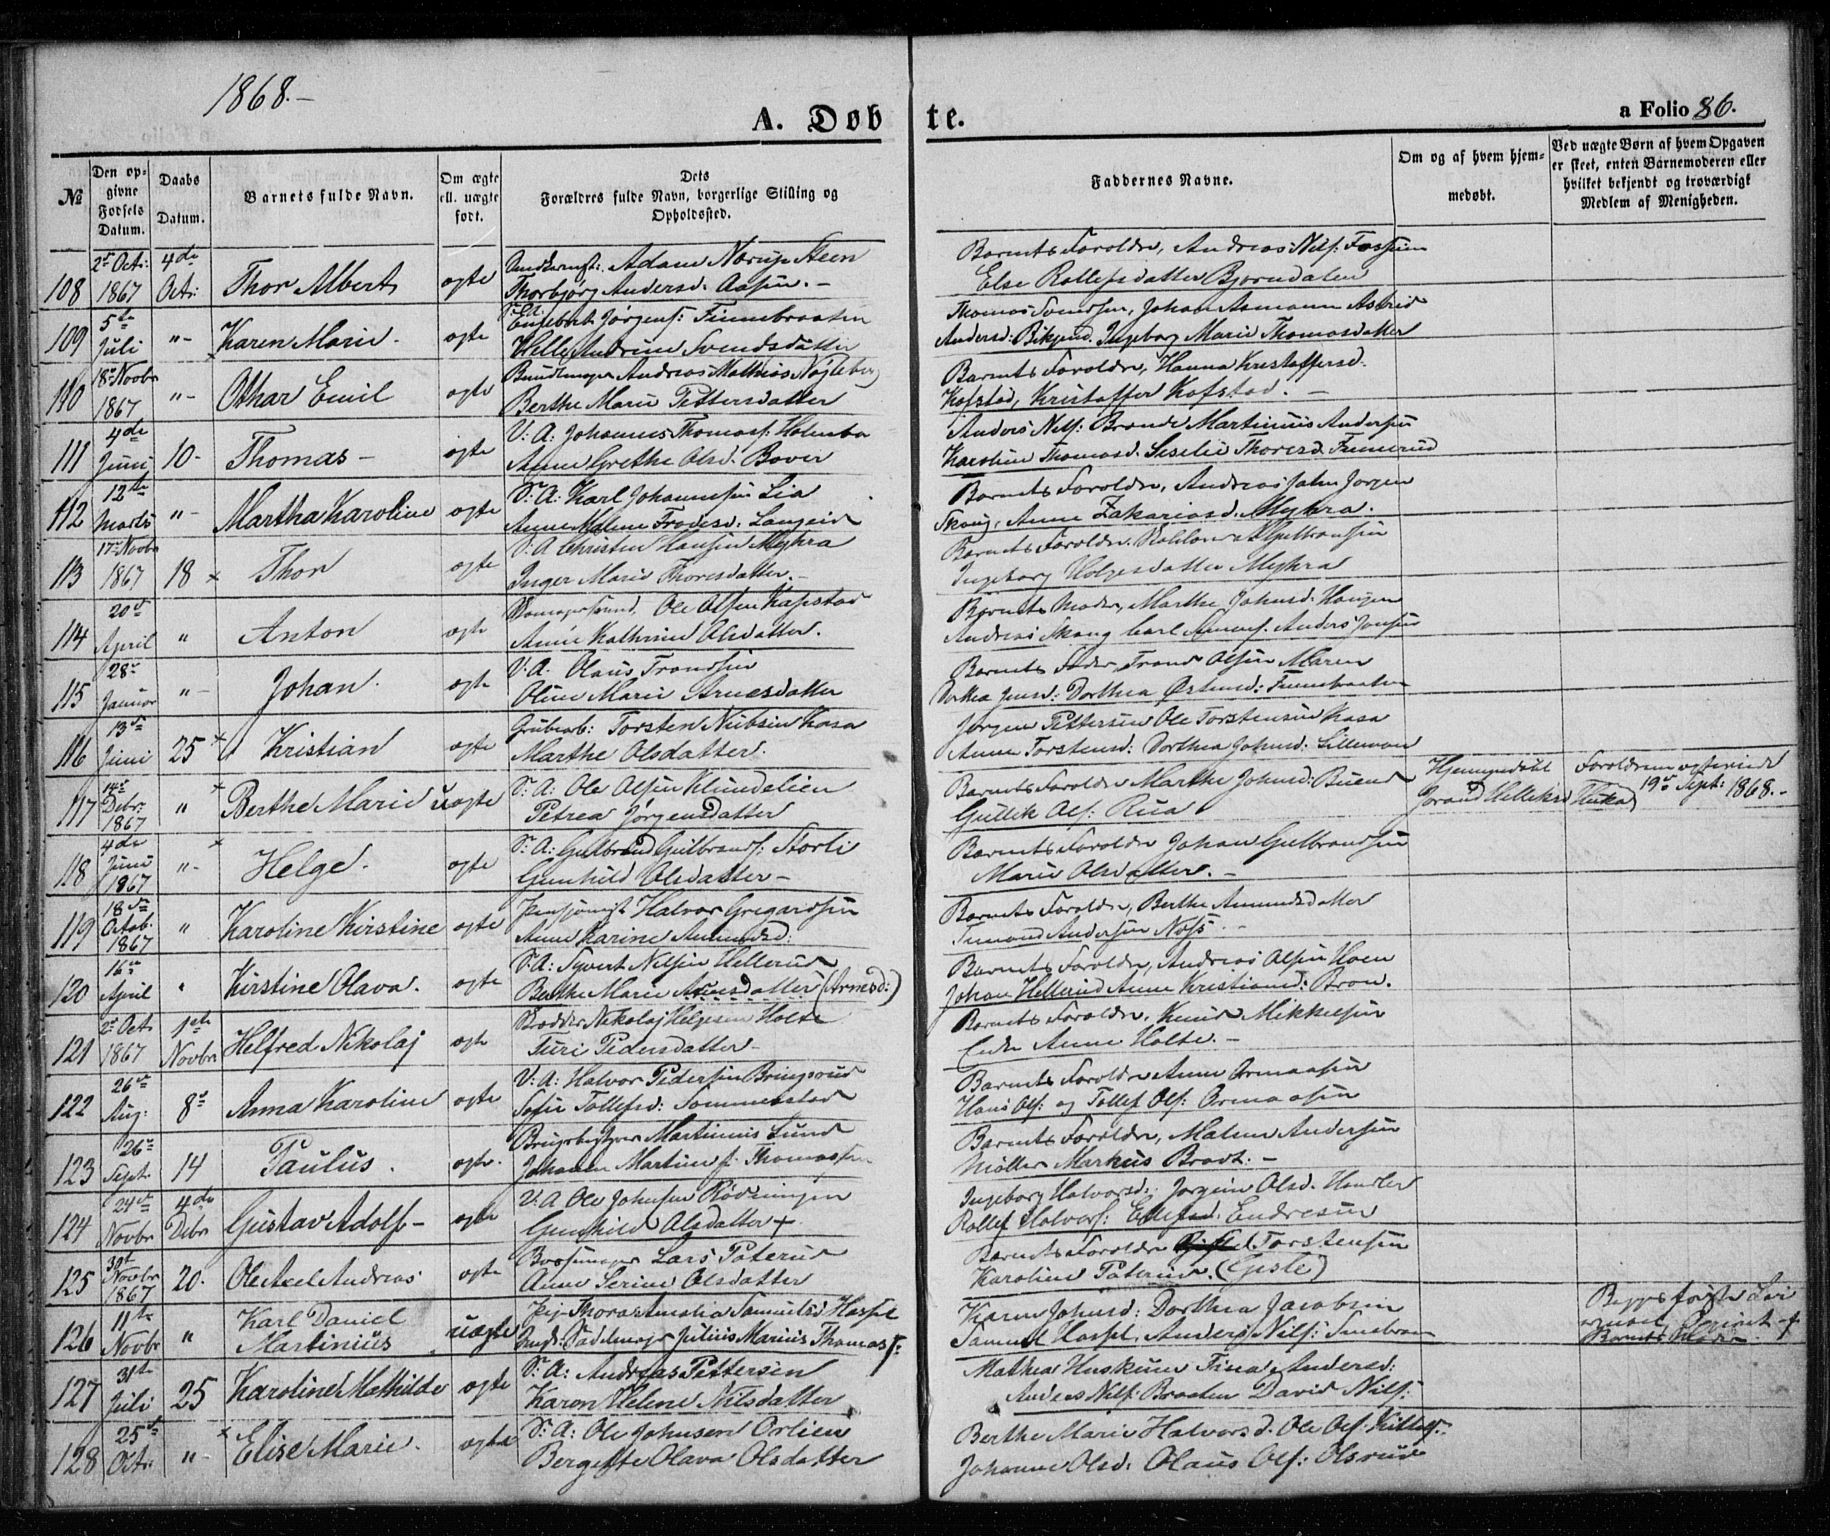 1868.-
A. Døbte.
a Folio 86.
№
Den opgivne Fødsels Datum.
Daabs Datum.
Barnets fulde Navn.
Om ægte ell. uægte født.
Dets Forældres fulde Navn, borgerlige Stilling og Opholdssted.
Faddernes Navne.
Om og af hvem hjemmedøbt.
Ved uægte Børn af hvem Opgaven er skeet, enten Barnemoderen eller hvilket bekjendt og troværdigt Medlem af Menigheden.
108 2de Oct: 1867 4de Oct: Thor Albert ægte Adam Nørup Steen
Thorbjørg Andersd. Aasen.-
Barnets Forældre, Andreas Nils: Fossum
Else Rollefsdatter Bjørndalen
109 5te Juli "- Karen Marie. ægte Engebret Jørgens: Finnebraaten
Andrine Svendsdatter
Thomas Svendsen, Johan Asmann Astrid
Andersd: Ingeborg Marie Thomasdatter
110 18de Novbr 1867 "- Othar Emil ægte Bundtmager Andreas Mathias Nøgleberg
Berthe Marie Pettersdatter
Barnets Forældre, Hanna Kristoffersd:
Kofstad, Kristoffer Kofstad. -
111 4de Juni 10- Thomas- ægte V: A: Johannes Thomas: Holmbo
Anne Grethe Olsd: Bover
Anders Nils: Martinius Andersen
Karoline Thomasd. Seselie Thoresd.
112 12te Marts "- Martha Karoline ægte S: A: Karl Johannesen Lia
Anne Malene Frodesd: Langeid
Barnets Forældre, Andreas Jørgen
Skoug, Anne Zakariasd. Myhra.
113 17de Novbr 1867 18 x Thor ægte V: A Christen Hansen Myhra
Inger Marie Thoresdatter.-
Barnets Forældre
Ingeborg Helgesdatter Myhra
114 20de April " Anton ægte Ole Olsen Kapstad
Anne Kathrine Olsdatter.
Barnets Moder, Marthe Johnsd: Haugen
Andreas Skoug Carl Anders Jonsen
115 28de Januar "- Johan. ægte V: A. Olaus Trondsen
Oline Marie Arnesdatter
Barnets Fader, Trond Olsen Maren
Dorthea Østensd: Finnebraaten
116 13de Juni 25 + Kristian ægte Grubearb: Torsten Nubsen Kasa
Marthe Olsdatter.
Jørgen Pettersen Ole Torstensen Kasa
Anne Torstensd: Dorthea Johnsd:
117 14de Debr. 1867 " + Berthe Marie uægte S: A: Ole Olsen Klundelien
Petrea Jørgensdatter
Barnets Forældre Marthe Johnsd: Buen
Gullik Ols: Rua
Hjemmedøbt
Jorand Helleksd
Forældrene ægteviede
19de Sept: 1868.-
118 4de Juni 1867 "- + Helge. ægte S: A: Gulbrand Gulbrands: Storli
Gunhild Olsdatter-
Barnets Forældre Johan Gulbrandsen
Marie Olsdatter. -
119 18de Octob. 1867 " Karoline Kirstine ægte Halvor Gregardsen
Anne Karine Amundsd:
Barnets Forældre, Berthe Amundsdatter
Andersen Næss. -
120 16de April " Kirstine Olava. ægte S: A: Syvert Nilsen Hellerud
Berthe Marie Arnesdatter (Arnesd:)
Barnets Forældre, Andreas Olsen Hoen
Johan Hellerud Anne Kristiansd: Broen.
121 2de Oct: 1867 1ste Novbr Helfred Nikolaj ægte Bødker Nikolaj Helgesen Holte
Turi Pedersdatter-
Barnets Forældre, Knud Mikkelsen
Anne Holte. -
122 26de Aug: 8de Anna Karoline ægte V: A: Halvor Pedersen Bringsrud
Sofie Tollefsd: Sommerstad
Barnets Forældre Anne Ormaasen
Hans Ols: og Tollef Ols: Ormaasen
123 26de Sept: 14 Paulus. ægte. Brugsbestyrer Martinius Lund
Johanne Martine f. Thomassen
Barnets Forældre, Malene Andersen
Møller Markus Bradt. -
124 24de Novbr 4de Debr Gustav Adolf- ægte V: A Ole Johnsen Rødningen
Gunhild Olsdatter +
Ingeborg Halvorsd: Jørgine Olsd.
Rollef Halvors: Endresen
125 30te Novbr 1867 20. Ole Axel Andreas ægte Bøssemager Lars Paterud
Anne Serine Olsdatter
Barnets Forældre Torstensen
Karoline Paterud. (Giste)
126 11te Novbr " Karl Daniel
Martinius uægte Pige Thora Amalia Samuelsd Haspel
Ungk: Sadelmager Julius Marius Thomas:
Karen Johnsd: Dorthea Jacobsen
Samuel Haspel, Anders Nils:
Begges første
Barnets Moder +
127 31te Juli 25 Karoline Mathilde ægte S: A: Andreas Pettersen
Karen Helene Nilsdatter
Mathea Huskum Tina Andersd:
Anders Nils: Braaten David Nils:
128 25de Oct: "- + Elise Marie. ægte S: A: Ole Johnsen Orlien
Bergitte Olava Olsdatter
Berthe Marie Halvorsd. Ole Ols:
Johanne Olsd: Olaus Ols: Olsrud